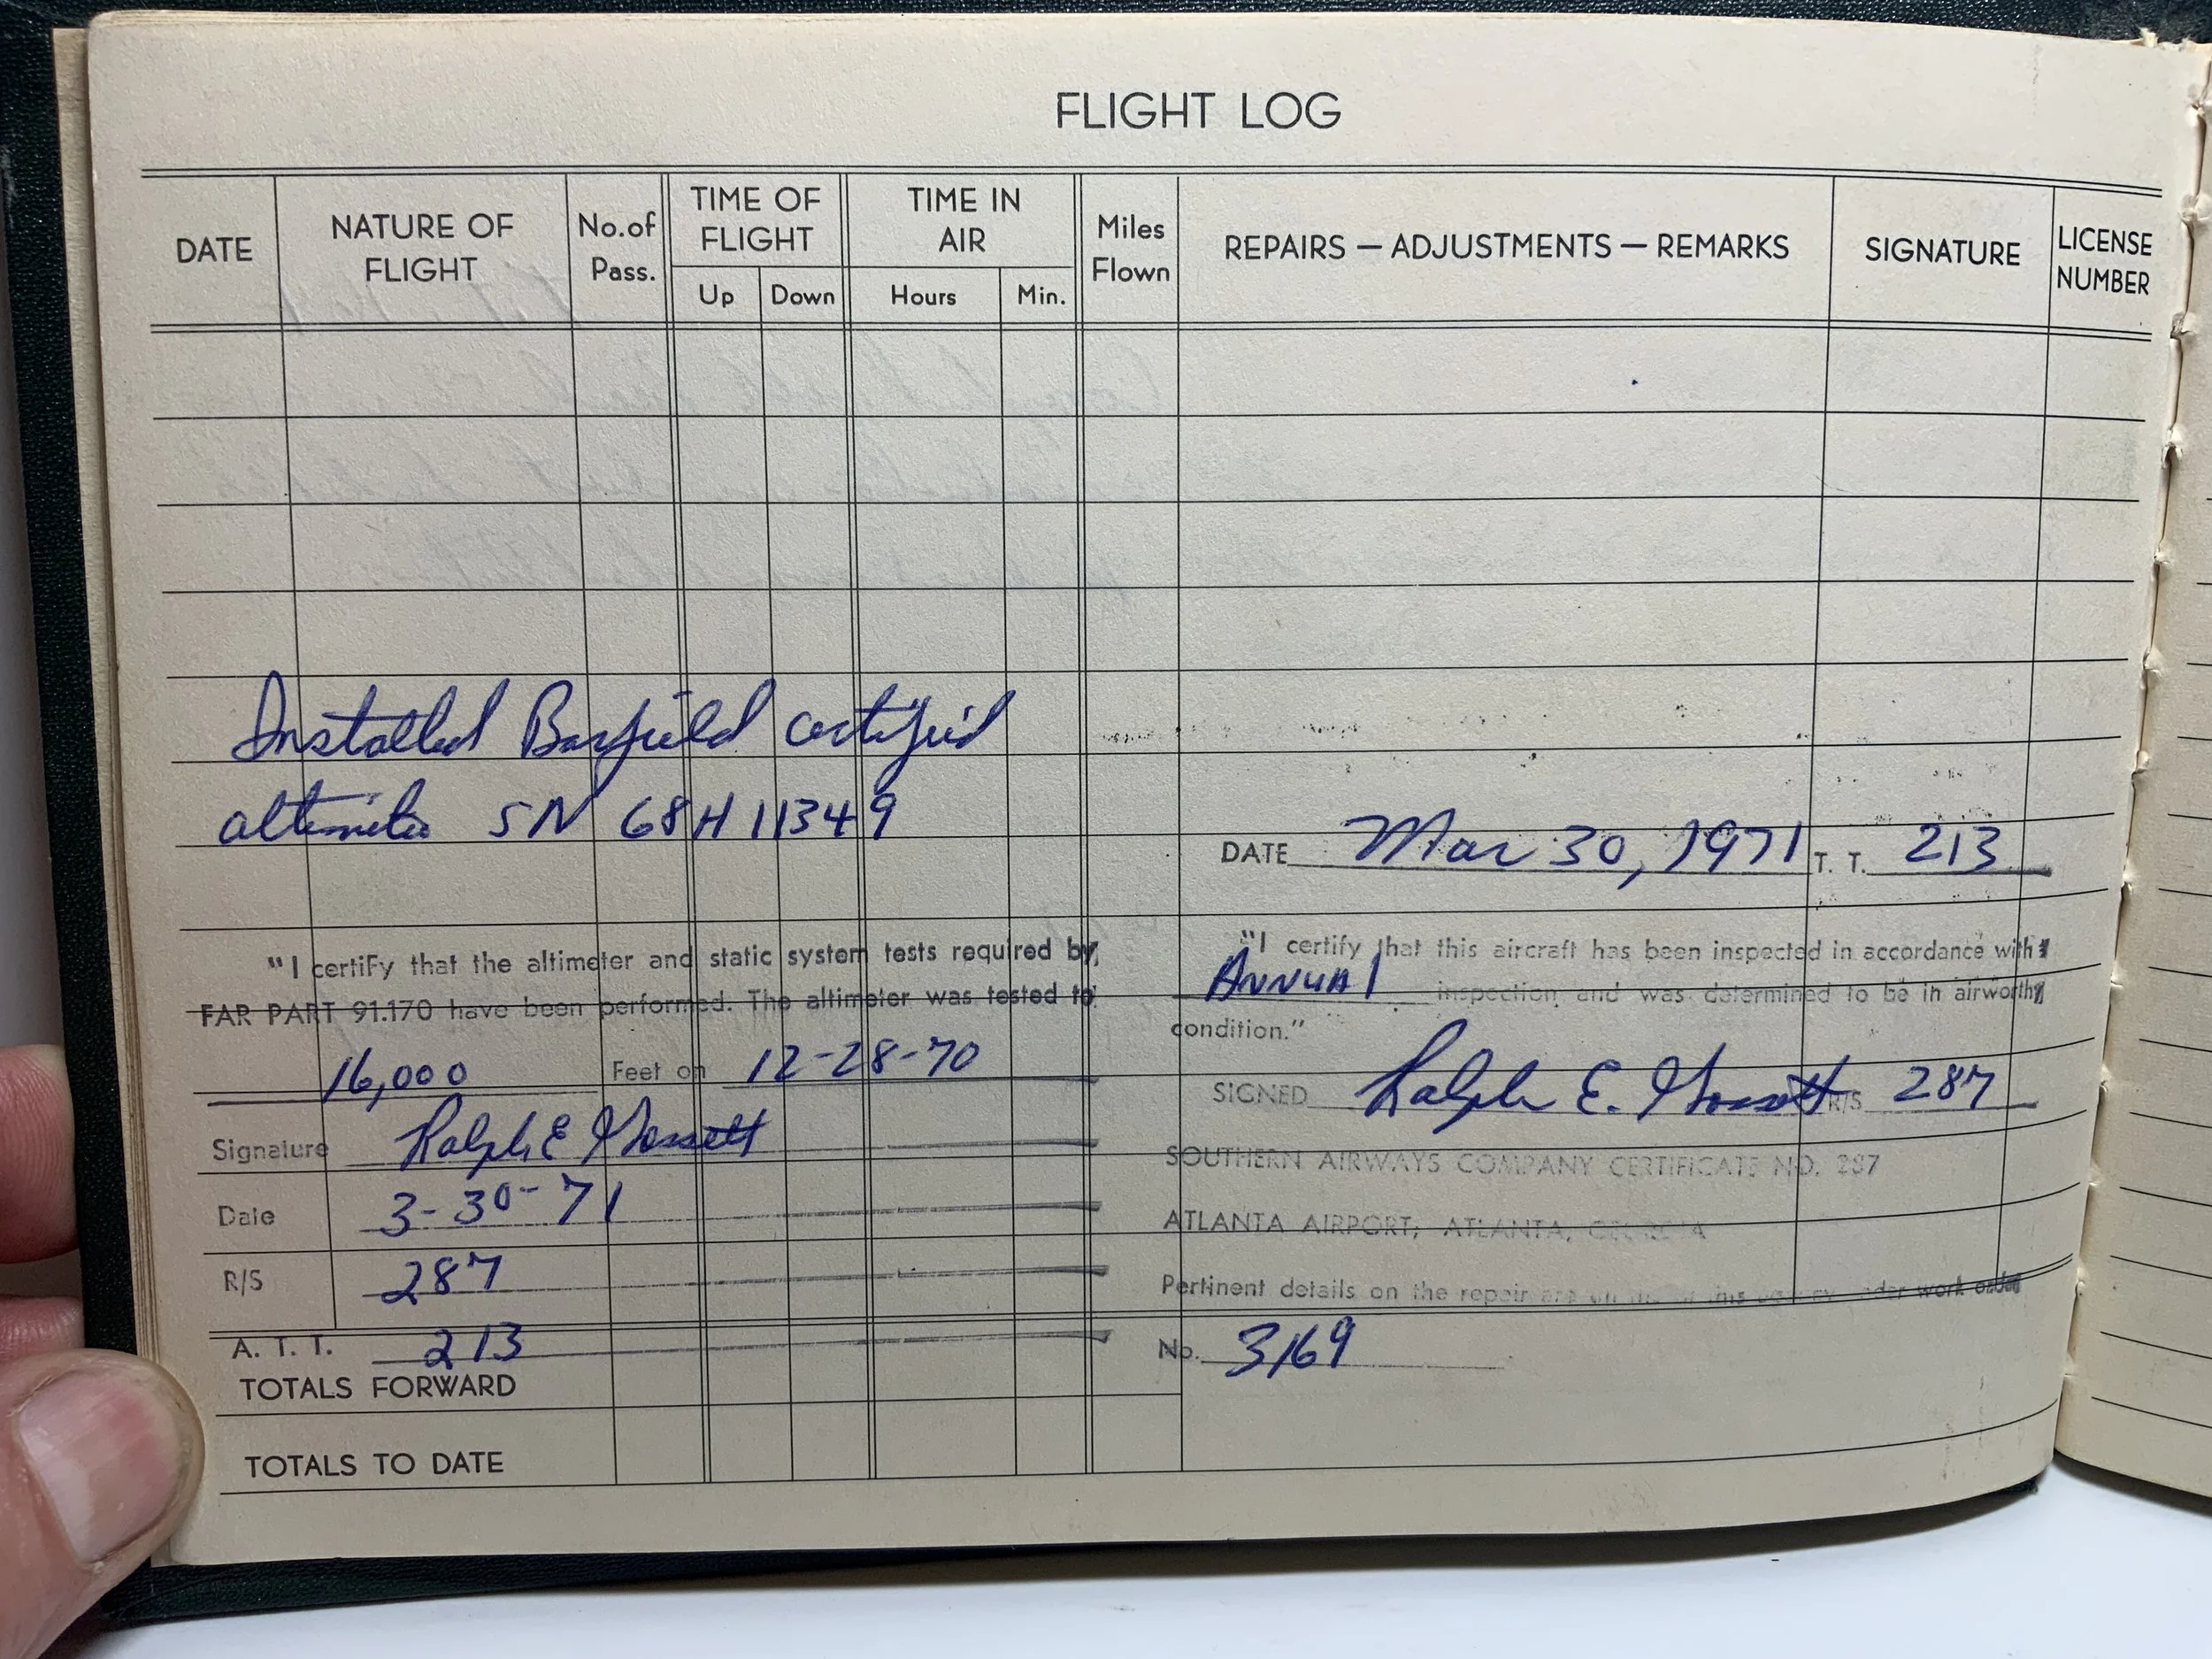 FLIGHT LOG
DATE
NATURE OF FLIGHT
No.of Pass.
TIME OF FLIGHT
Up Down
TIME IN AIR
Hours Min.
Miles Flown
REPAIRS — ADJUSTMENTS — REMARKS
SIGNATURE
LICENSE NUMBER
Installed Barfield certified
altimeter SN 68H11349
"I certiFy that the altimeter and static system tests required by
FAR PART 91.170 have been performed. The altimeter was tested to
16,000 Feet on 12-28-70
Signature Ralph E Gossett
Date 3-30-71
R/S 287
A. T. T. 213
TOTALS FORWARD
TOTALS TO DATE
DATE Mar 30, 1971 T. T. 213
"I certify that this aircraft has been inspected in accordance with
ANNUAl inspection and was determined to be in airworthy
condition."
SIGNED Ralph E. Gossett R/S 287
SOUTHERN AIRWAYS COMPANY CERTIFICATE NO. 287
ATLANTA AIRPORT; ATLANTA, GEORGIA
Pertinent details on the repair are on this work order
No. 3169